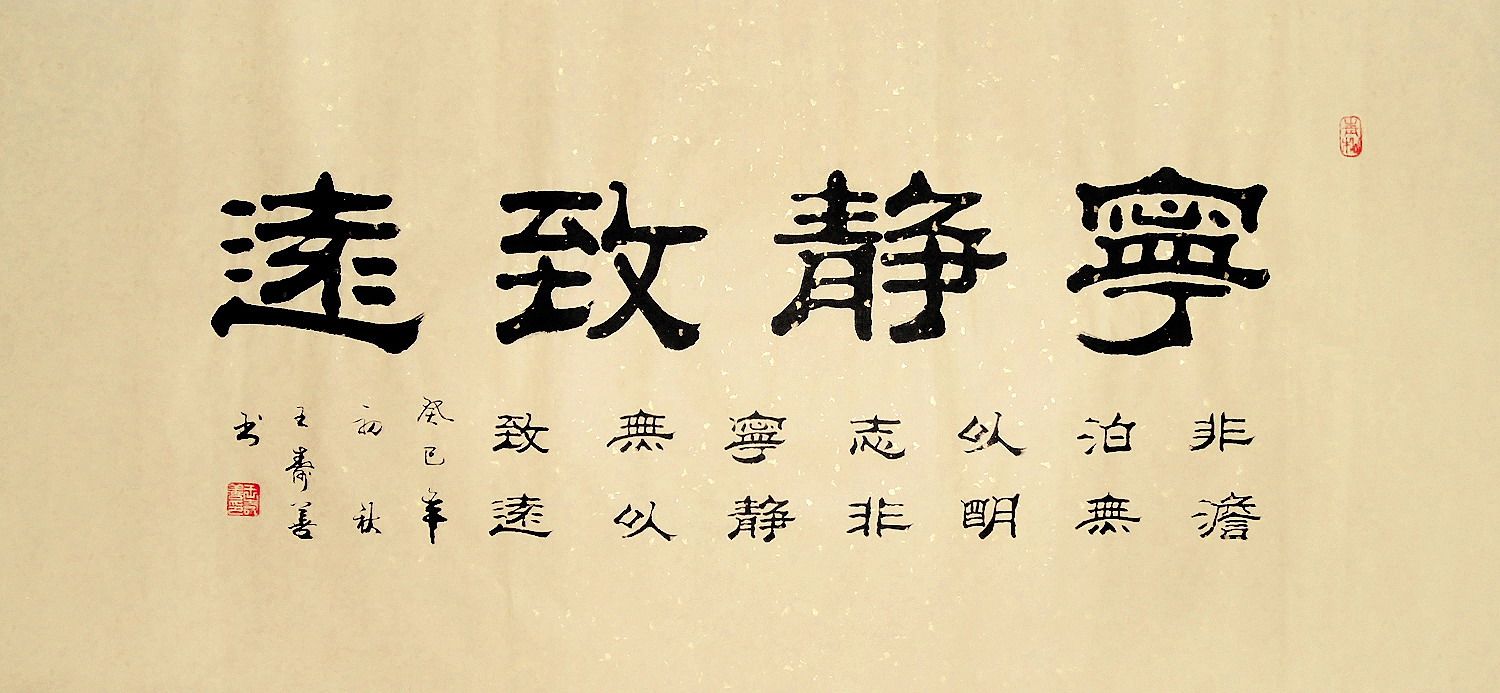 寧靜致遠
非澹
泊無
以明
志非
寧靜
無以
致遠
癸巳年
初秋
王壽善
书